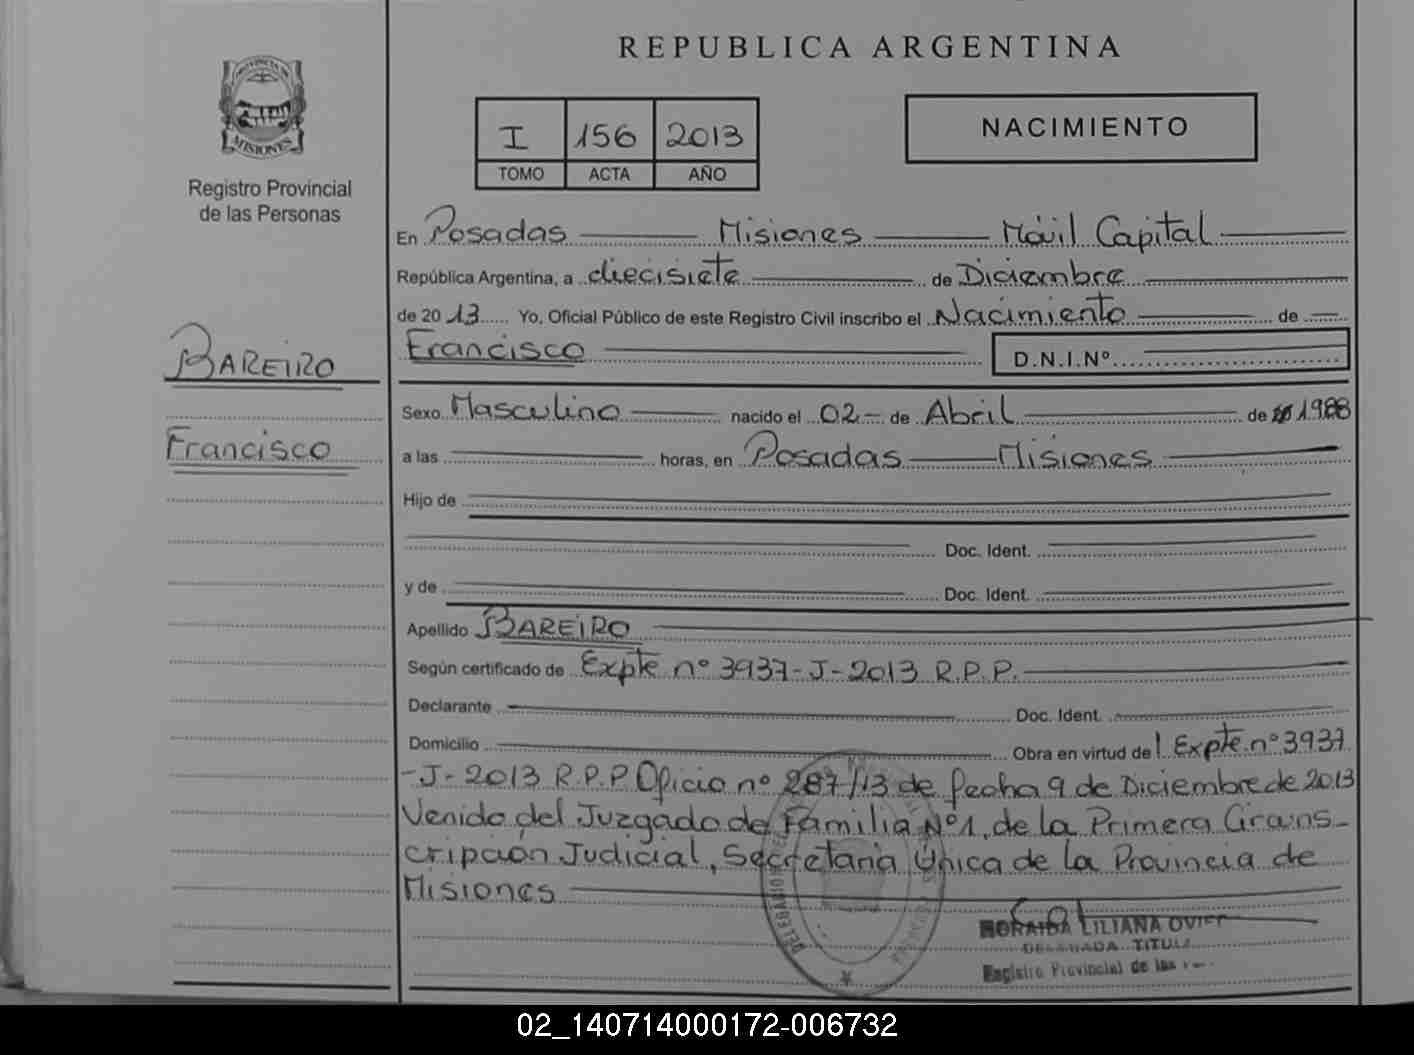 REPUBLICA ARGENTINA
PROVINCIA DE
MISIONES
Registro Provincial
de las Personas
I 156 2013
TOMO ACTA AÑO
NACIMIENTO
BAREIRO
Francisco
En Posadas Misiones Móvil Capital
República Argentina, a diecisiete de Diciembre
de 2013 Yo, Oficial Público de este Registro Civil inscribo el Nacimiento de
Francisco D.N.I.Nº
Sexo Masculino nacido el 02 de Abril de 1988
a las horas, en Posadas Misiones
Hijo de
Doc. Ident.
y de Doc. Ident.
Apellido BAREIRO
Según certificado de Expte nº 3937-J-2013 R.P.P.
Declarante Doc. Ident.
Domicilio Obra en virtud del Expte. nº 3937
-J-2013 R.P.P Oficio nº 287/13 de fecha 9 de Diciembre de 2013
Venido del Juzgado de Familia Nº1, de la Primera Circuns-
cripción Judicial, Secretaria Única de la Provincia de
Misiones
DELEGACION
LILIANA
DELEGADA TITUL
Registro Provincial de las
02_140714000172-006732